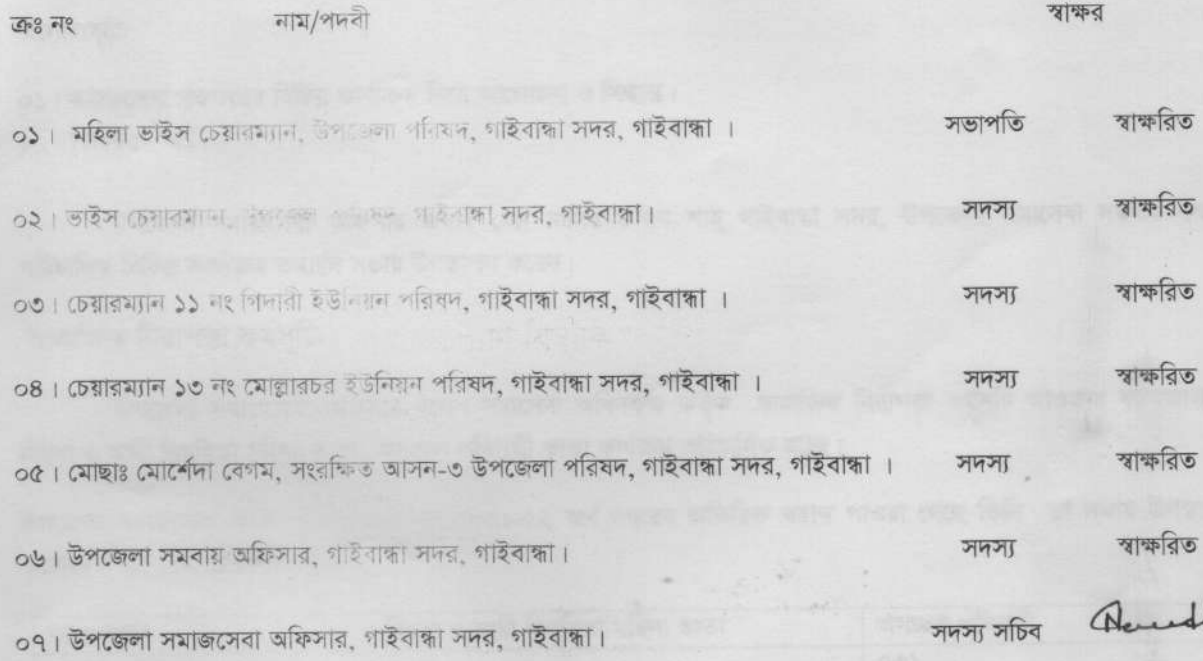 ক্রঃ নং নাম/পদবী স্বাক্ষর
০১। মহিলা ভাইস চেয়ারম্যান, উপজেলা পরিষদ, গাইবান্ধা সদর, গাইবান্ধা । সভাপতি স্বাক্ষরিত
০২। ভাইস চেয়ারম্যান, উপজেলা পরিষদ, গাইবান্ধা সদর, গাইবান্ধা। সদস্য স্বাক্ষরিত
০৩। চেয়ারম্যান ১১ নং গিদারী ইউনিয়ন পরিষদ, গাইবান্ধা সদর, গাইবান্ধা । সদস্য স্বাক্ষরিত
০৪। চেয়ারম্যান ১৩ নং মোল্লারচর ইউনিয়ন পরিষদ, গাইবান্ধা সদর, গাইবান্ধা । সদস্য স্বাক্ষরিত
০৫। মোছাঃ মোর্শেদা বেগম, সংরক্ষিত আসন-৩ উপজেলা পরিষদ, গাইবান্ধা সদর, গাইবান্ধা । সদস্য স্বাক্ষরিত
০৬। উপজেলা সমবায় অফিসার, গাইবান্ধা সদর, গাইবান্ধা। সদস্য স্বাক্ষরিত
০৭। উপজেলা সমাজসেবা অফিসার, গাইবান্ধা সদর, গাইবান্ধা। সদস্য সচিব